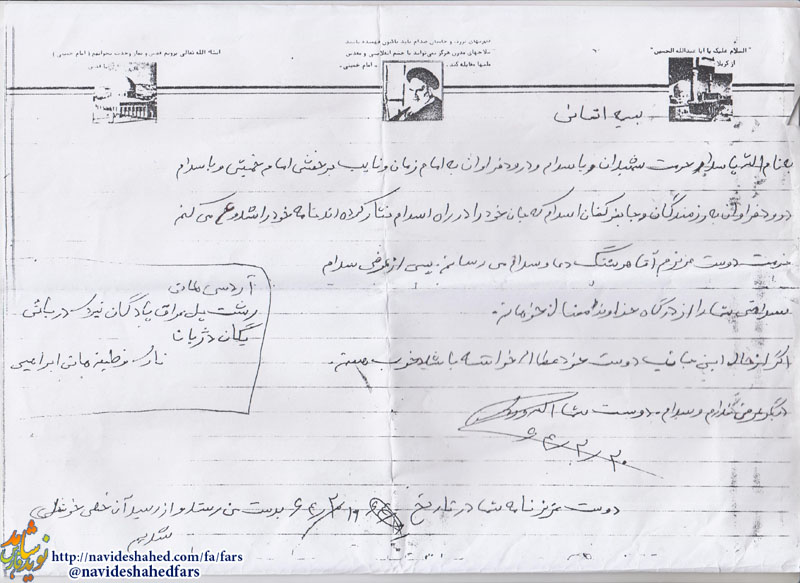 "السلام علیک یا ابا عبدالله الحسین"
از کربلا
سلاحهای مدرن هرگز نمی‌توانند با خشم انقلابی و مقدس
ملتها مقابله کند. - امام خمینی -
انشاء الله تعالی برویم قدس و نماز وحدت بخوانیم ( امام خمینی )
تا قدس
بسمه تعالی
بنام الله با سلام و حرمت شهیدان و با سلام و درود فراوان به امام زمان و نایب برحقش امام خمینی و با سلام
درود فراوان به رزمندگان و جان بر کفان اسلام که جان خود را در راه اسلام نثار کرده اند نامه خود را شروع می کنم
خدمت دوست عزیزم آقا هوشنگ دعا و سلام می رسانم. پس از عرض سلام
سلامتی شما را از درگاه خداوند متعال خواهانم.
اگر از حال این جانب دوست خود خواسته باشید خوب هستم.
دیگر عرضی ندارم و سلام. دوست شما اکبر
۶۴/۲/۲۰
آدرس
رشت پل عراق پادگان نیروی دریائی
یگان دژبان
ناوی وظیفه ابراهیمی
دوست عزیز نامه شما در تاریخ ۶۴/۲/۱۹ بدست من رسید و از رسید آن خیلی خوشحال
شدیم
نوید شاهد
فارس
http://navideshahed.com/fa/fars
@navideshahedfars